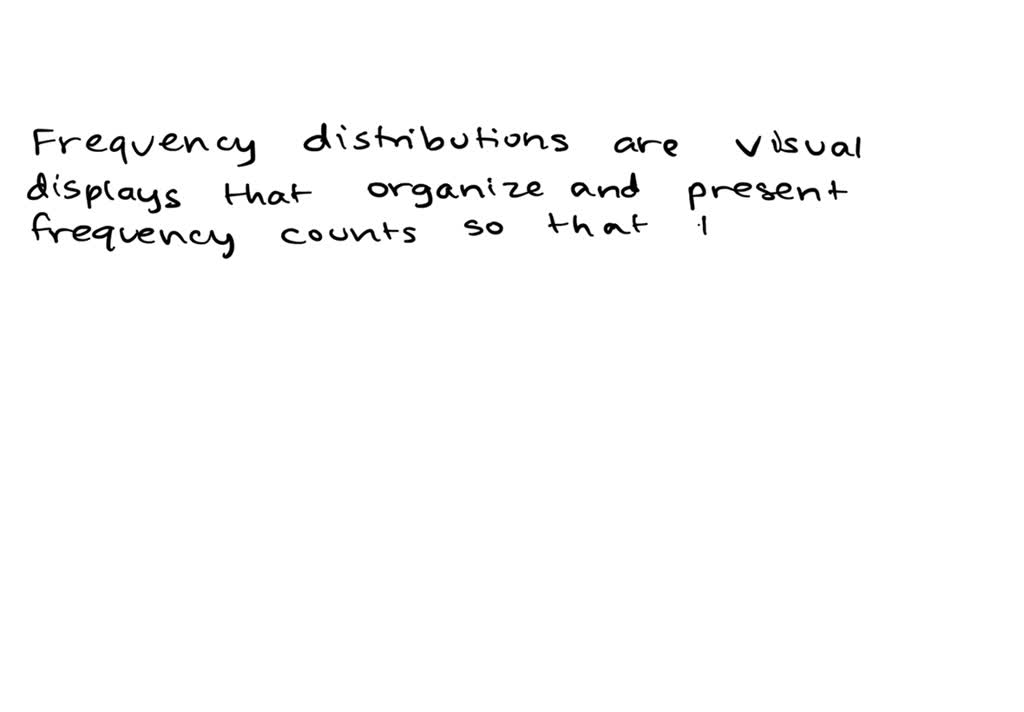 Frequency distributions are visual
displays that organize and present
frequency counts so that